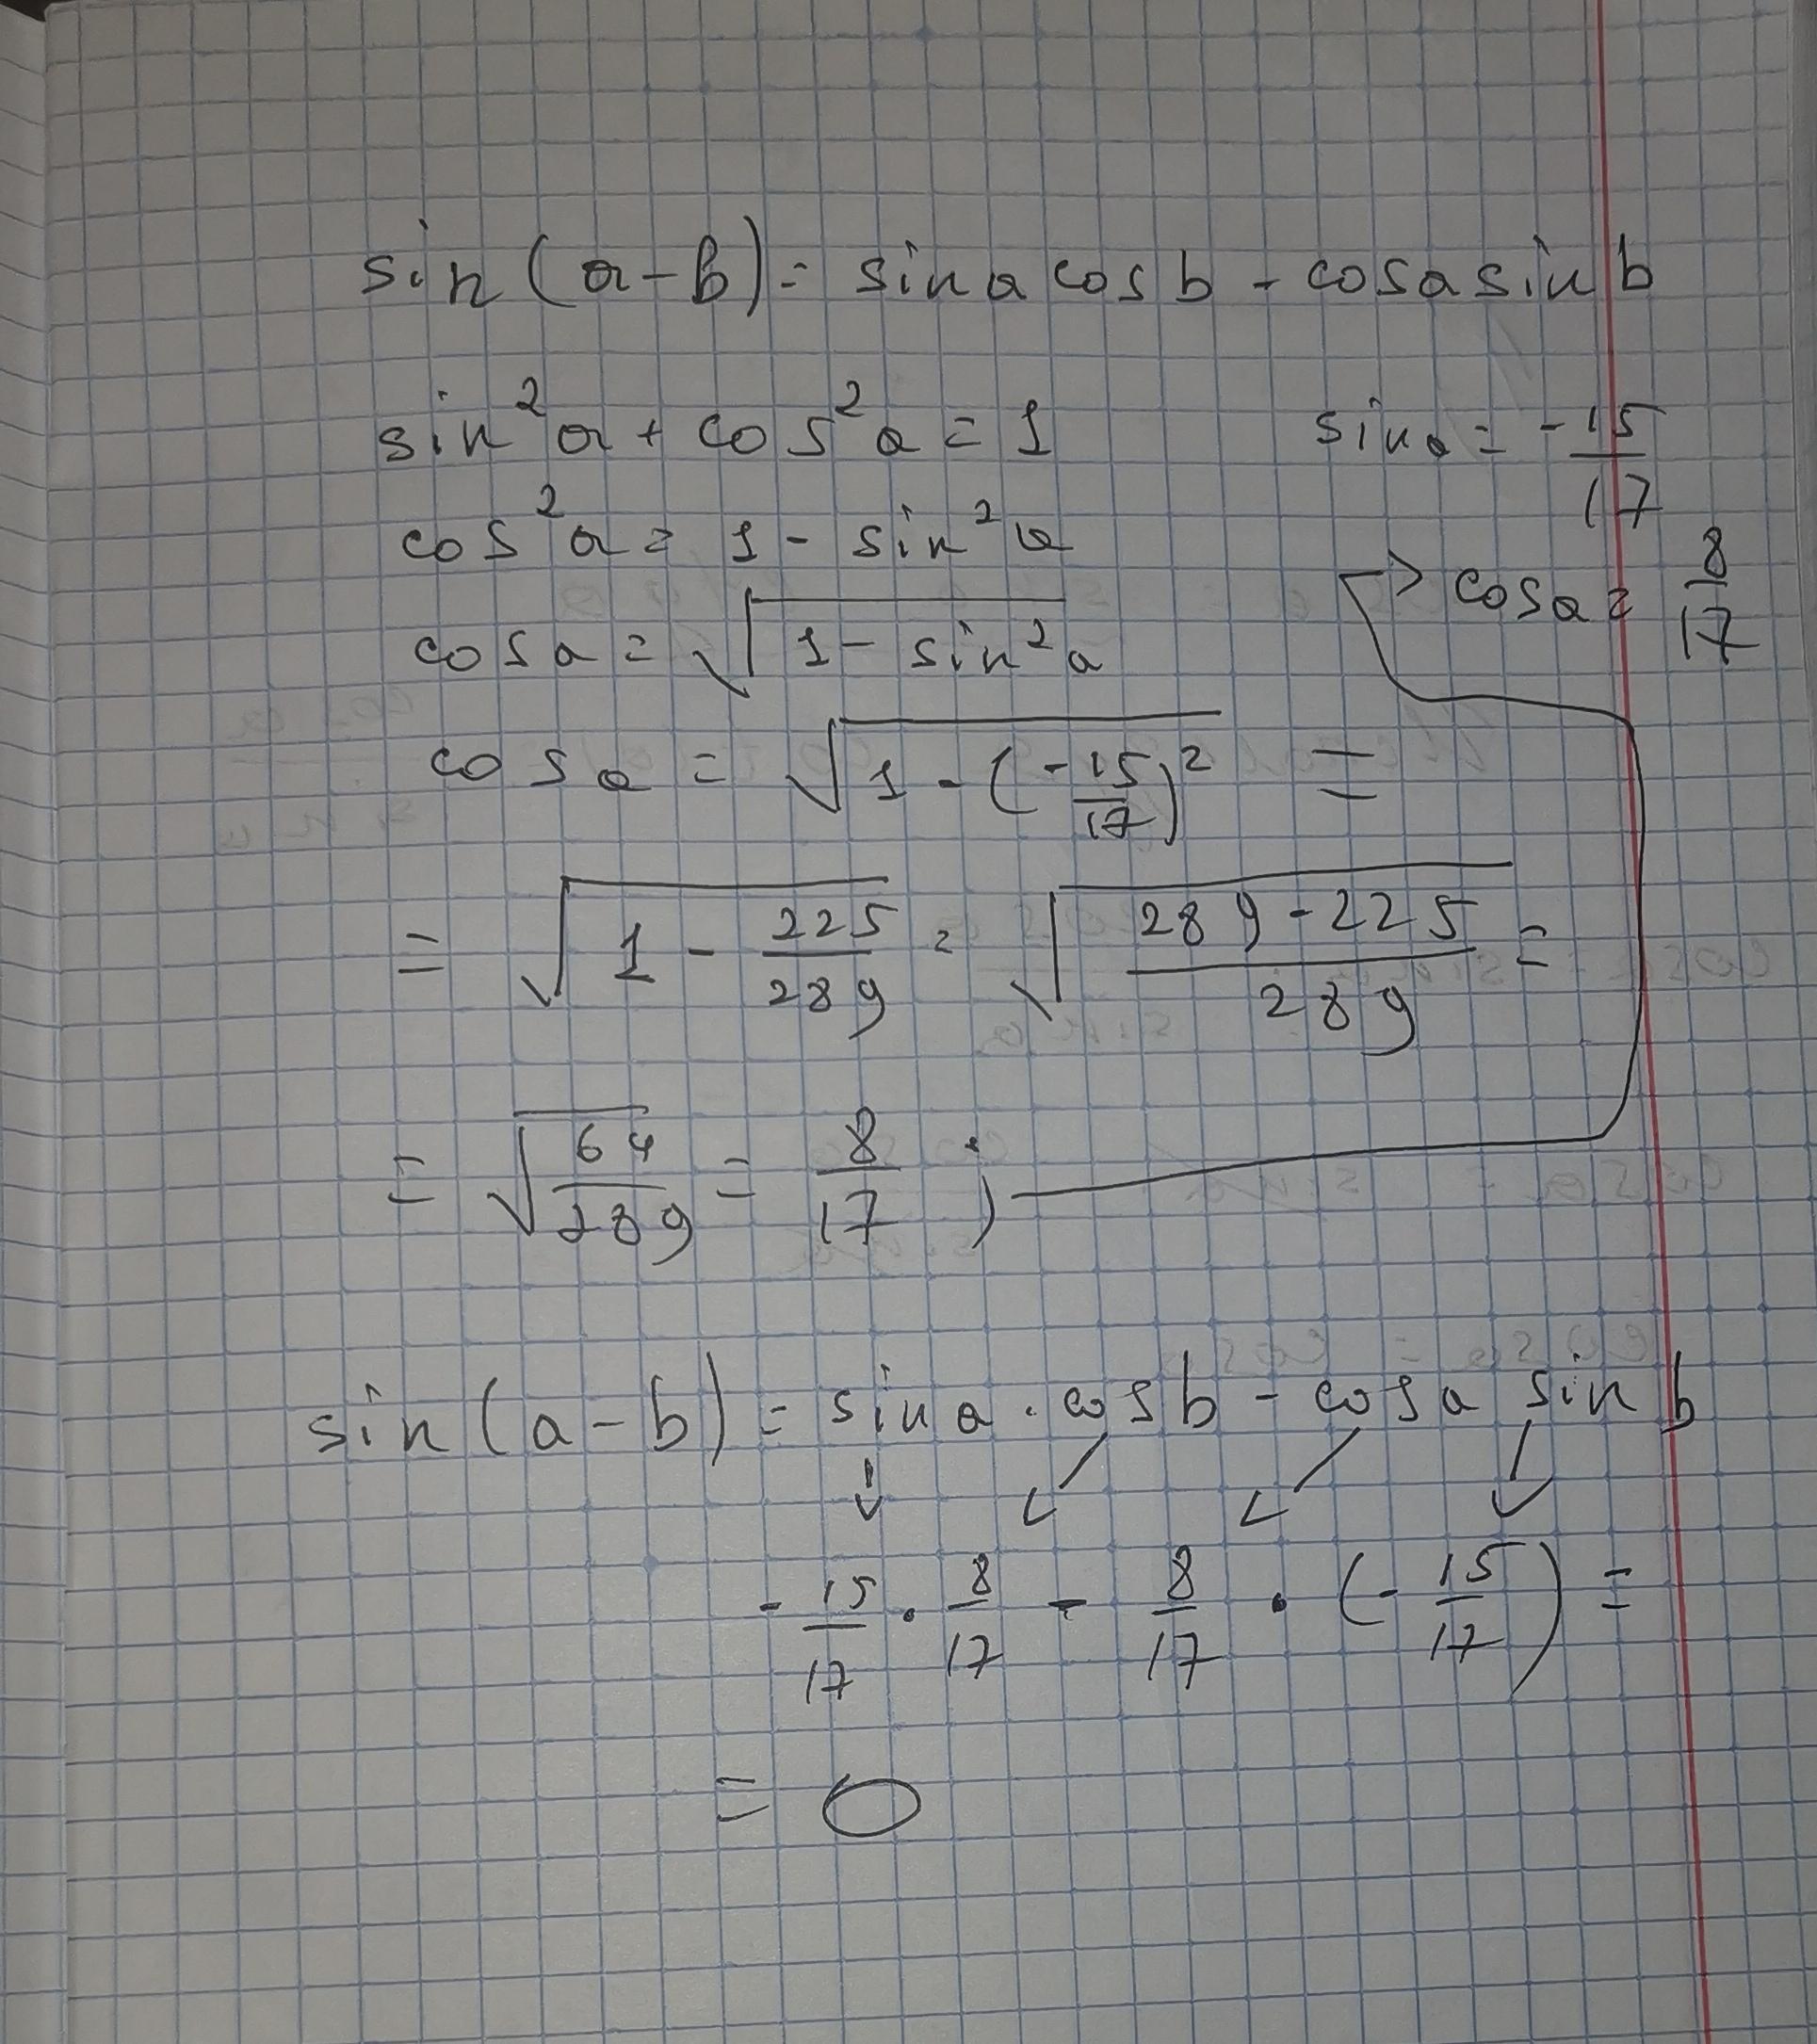 sin(a-b)= sin a cos b - cos a sin b
sin²a + cos²a = 1 sin a = -15/17
cos²a = 1 - sin²a
cos a = 8/17
cos a = √(1 - sin²a)
cos a = √(1 - (-15/17)²) =
= √(1 - 225/289) = √((289-225)/289) =
= √(64/289) = 8/17 ;
sin(a-b) = sin a · cos b - cos a sin b
-15/17 · 8/17 - 8/17 · (-15/17) =
= 0